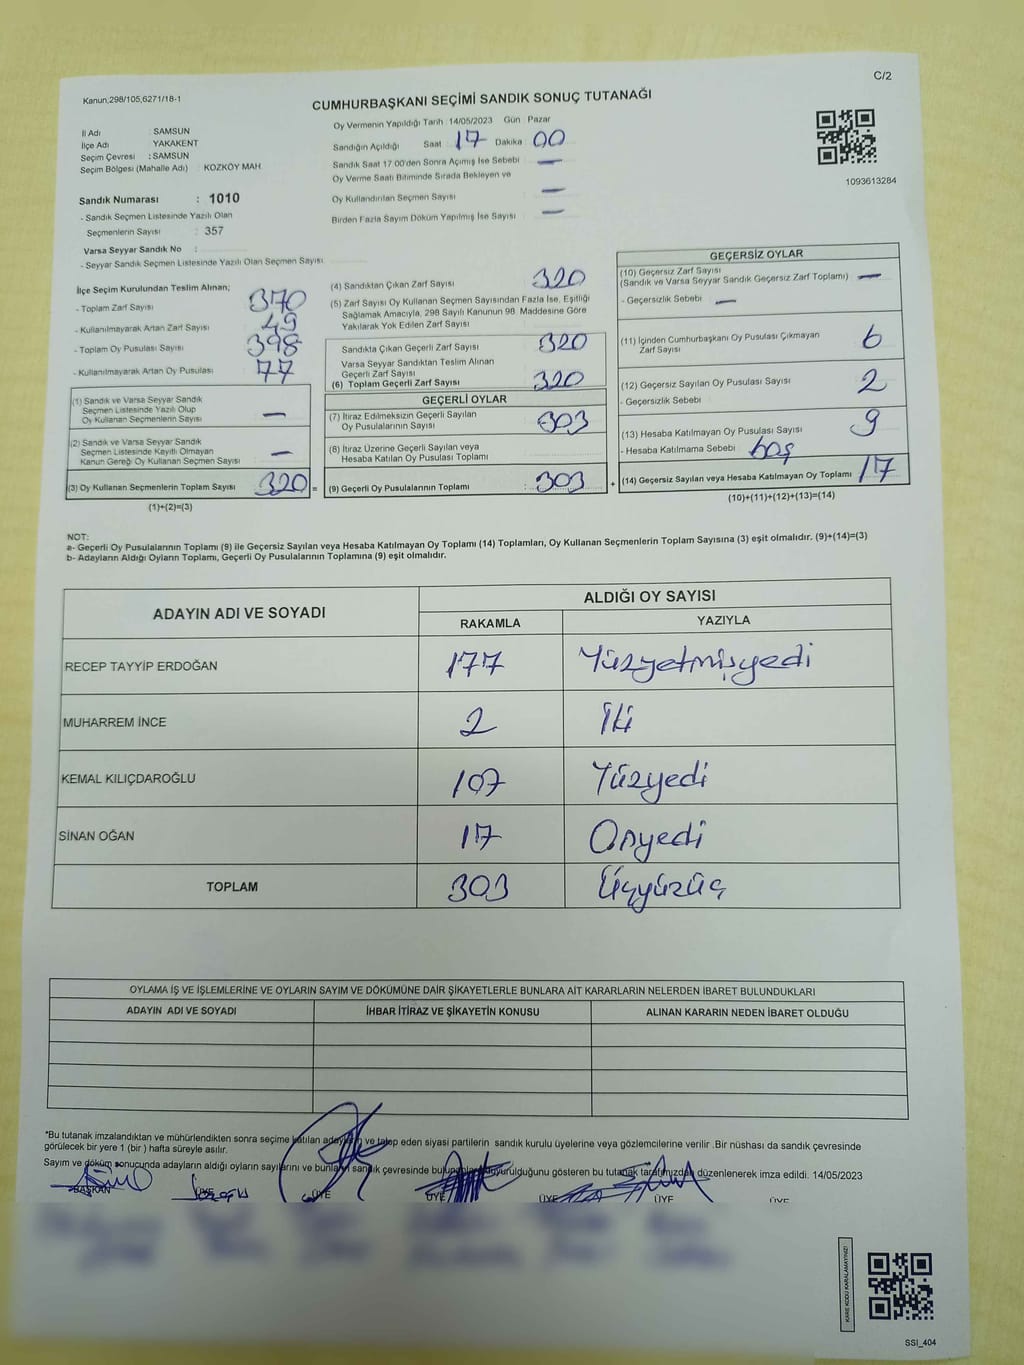 C/2
Kanun,298/105,6271/18-1
CUMHURBAŞKANI SEÇİMİ SANDIK SONUÇ TUTANAĞI
İl Adı : SAMSUN
İlçe Adı YAKAKENT
Seçim Çevresi : SAMSUN
Seçim Bölgesi (Mahalle Adı) KOZKÖY MAH.
Sandık Numarası : 1010
- Sandık Seçmen Listesinde Yazılı Olan
Seçmenlerin Sayısı : 357
Varsa Seyyar Sandık No :
- Seyyar Sandık Seçmen Listesinde Yazılı Olan Seçmen Sayısı
Oy Vermenin Yapıldığı Tarih : 14/05/2023 Gün Pazar
Sandığın Açıldığı Saat 17 Dakika 00
Sandık Saat 17.00'den Sonra Açılmış İse Sebebi —
Oy Verme Saati Bitiminde Sırada Bekleyen ve
Oy Kullandırılan Seçmen Sayısı —
Birden Fazla Sayım Döküm Yapılmış İse Sayısı —
1093613284
İlçe Seçim Kurulundan Teslim Alınan;
- Toplam Zarf Sayısı 370
- Kullanılmayarak Artan Zarf Sayısı 49
- Toplam Oy Pusulası Sayısı 398
- Kullanılmayarak Artan Oy Pusulası 77
(1) Sandık ve Varsa Seyyar Sandık
Seçmen Listesinde Yazılı Olup
Oy Kullanan Seçmenlerin Sayısı —
(2) Sandık ve Varsa Seyyar Sandık
Seçmen Listesinde Kayıtlı Olmayan
Kanun Gereği Oy Kullanan Seçmen Sayısı —
(3) Oy Kullanan Seçmenlerin Toplam Sayısı 320 =
(1)+(2)=(3)
(4) Sandıktan Çıkan Zarf Sayısı 320
(5) Zarf Sayısı Oy Kullanan Seçmen Sayısından Fazla İse, Eşitliği
Sağlamak Amacıyla, 298 Sayılı Kanunun 98. Maddesine Göre
Yakılarak Yok Edilen Zarf Sayısı
Sandıkta Çıkan Geçerli Zarf Sayısı 320
Varsa Seyyar Sandıktan Teslim Alınan
Geçerli Zarf Sayısı
(6) Toplam Geçerli Zarf Sayısı 320
GEÇERLİ OYLAR
(7) İtiraz Edilmeksizin Geçerli Sayılan
Oy Pusulalarının Sayısı 303
(8) İtiraz Üzerine Geçerli Sayılan veya
Hesaba Katılan Oy Pusulası Toplamı
(9) Geçerli Oy Pusulalarının Toplamı : 303 +
GEÇERSİZ OYLAR
(10) Geçersiz Zarf Sayısı
(Sandık ve Varsa Seyyar Sandık Geçersiz Zarf Toplamı) —
- Geçersizlik Sebebi —
(11) İçinden Cumhurbaşkanı Oy Pusulası Çıkmayan
Zarf Sayısı 6
(12) Geçersiz Sayılan Oy Pusulası Sayısı 2
- Geçersizlik Sebebi
(13) Hesaba Katılmayan Oy Pusulası Sayısı 9
- Hesaba Katılmama Sebebi boş
(14) Geçersiz Sayılan veya Hesaba Katılmayan Oy Toplamı 17
(10)+(11)+(12)+(13)=(14)
NOT:
a- Geçerli Oy Pusulalarının Toplamı (9) ile Geçersiz Sayılan veya Hesaba Katılmayan Oy Toplamı (14) Toplamları, Oy Kullanan Seçmenlerin Toplam Sayısına (3) eşit olmalıdır. (9)+(14)=(3)
b- Adayların Aldığı Oyların Toplamı, Geçerli Oy Pusulalarının Toplamına (9) eşit olmalıdır.
ADAYIN ADI VE SOYADI ALDIĞI OY SAYISI
RAKAMLA YAZIYLA
RECEP TAYYİP ERDOĞAN 177 Yüzyetmişyedi
MUHARREM İNCE 2 İki
KEMAL KILIÇDAROĞLU 107 Yüzyedi
SİNAN OĞAN 17 Onyedi
TOPLAM 303 Üçyüzüç
OYLAMA İŞ VE İŞLEMLERİNE VE OYLARIN SAYIM VE DÖKÜMÜNE DAİR ŞİKAYETLERLE BUNLARA AİT KARARLARIN NELERDEN İBARET BULUNDUKLARI
ADAYIN ADI VE SOYADI İHBAR İTİRAZ VE ŞİKAYETİN KONUSU ALINAN KARARIN NEDEN İBARET OLDUĞU
*Bu tutanak imzalandıktan ve mühürlendikten sonra seçime katılan adayların ve talep eden siyasi partilerin sandık kurulu üyelerine veya gözlemcilerine verilir. Bir nüshası da sandık çevresinde
görülecek bir yere 1 (bir ) hafta süreyle asılır.
Sayım ve döküm sonucunda adayların aldığı oyların sayılarını ve bunların sandık çevresinde duyurulduğunu gösteren bu tutanak tarafımızdan düzenlenerek imza edildi. 14/05/2023
BAŞKAN ÜYE ÜYE ÜYE ÜYE ÜYE ÜYE
KARE KODU KARALAMAYINIZ!
SSI_404